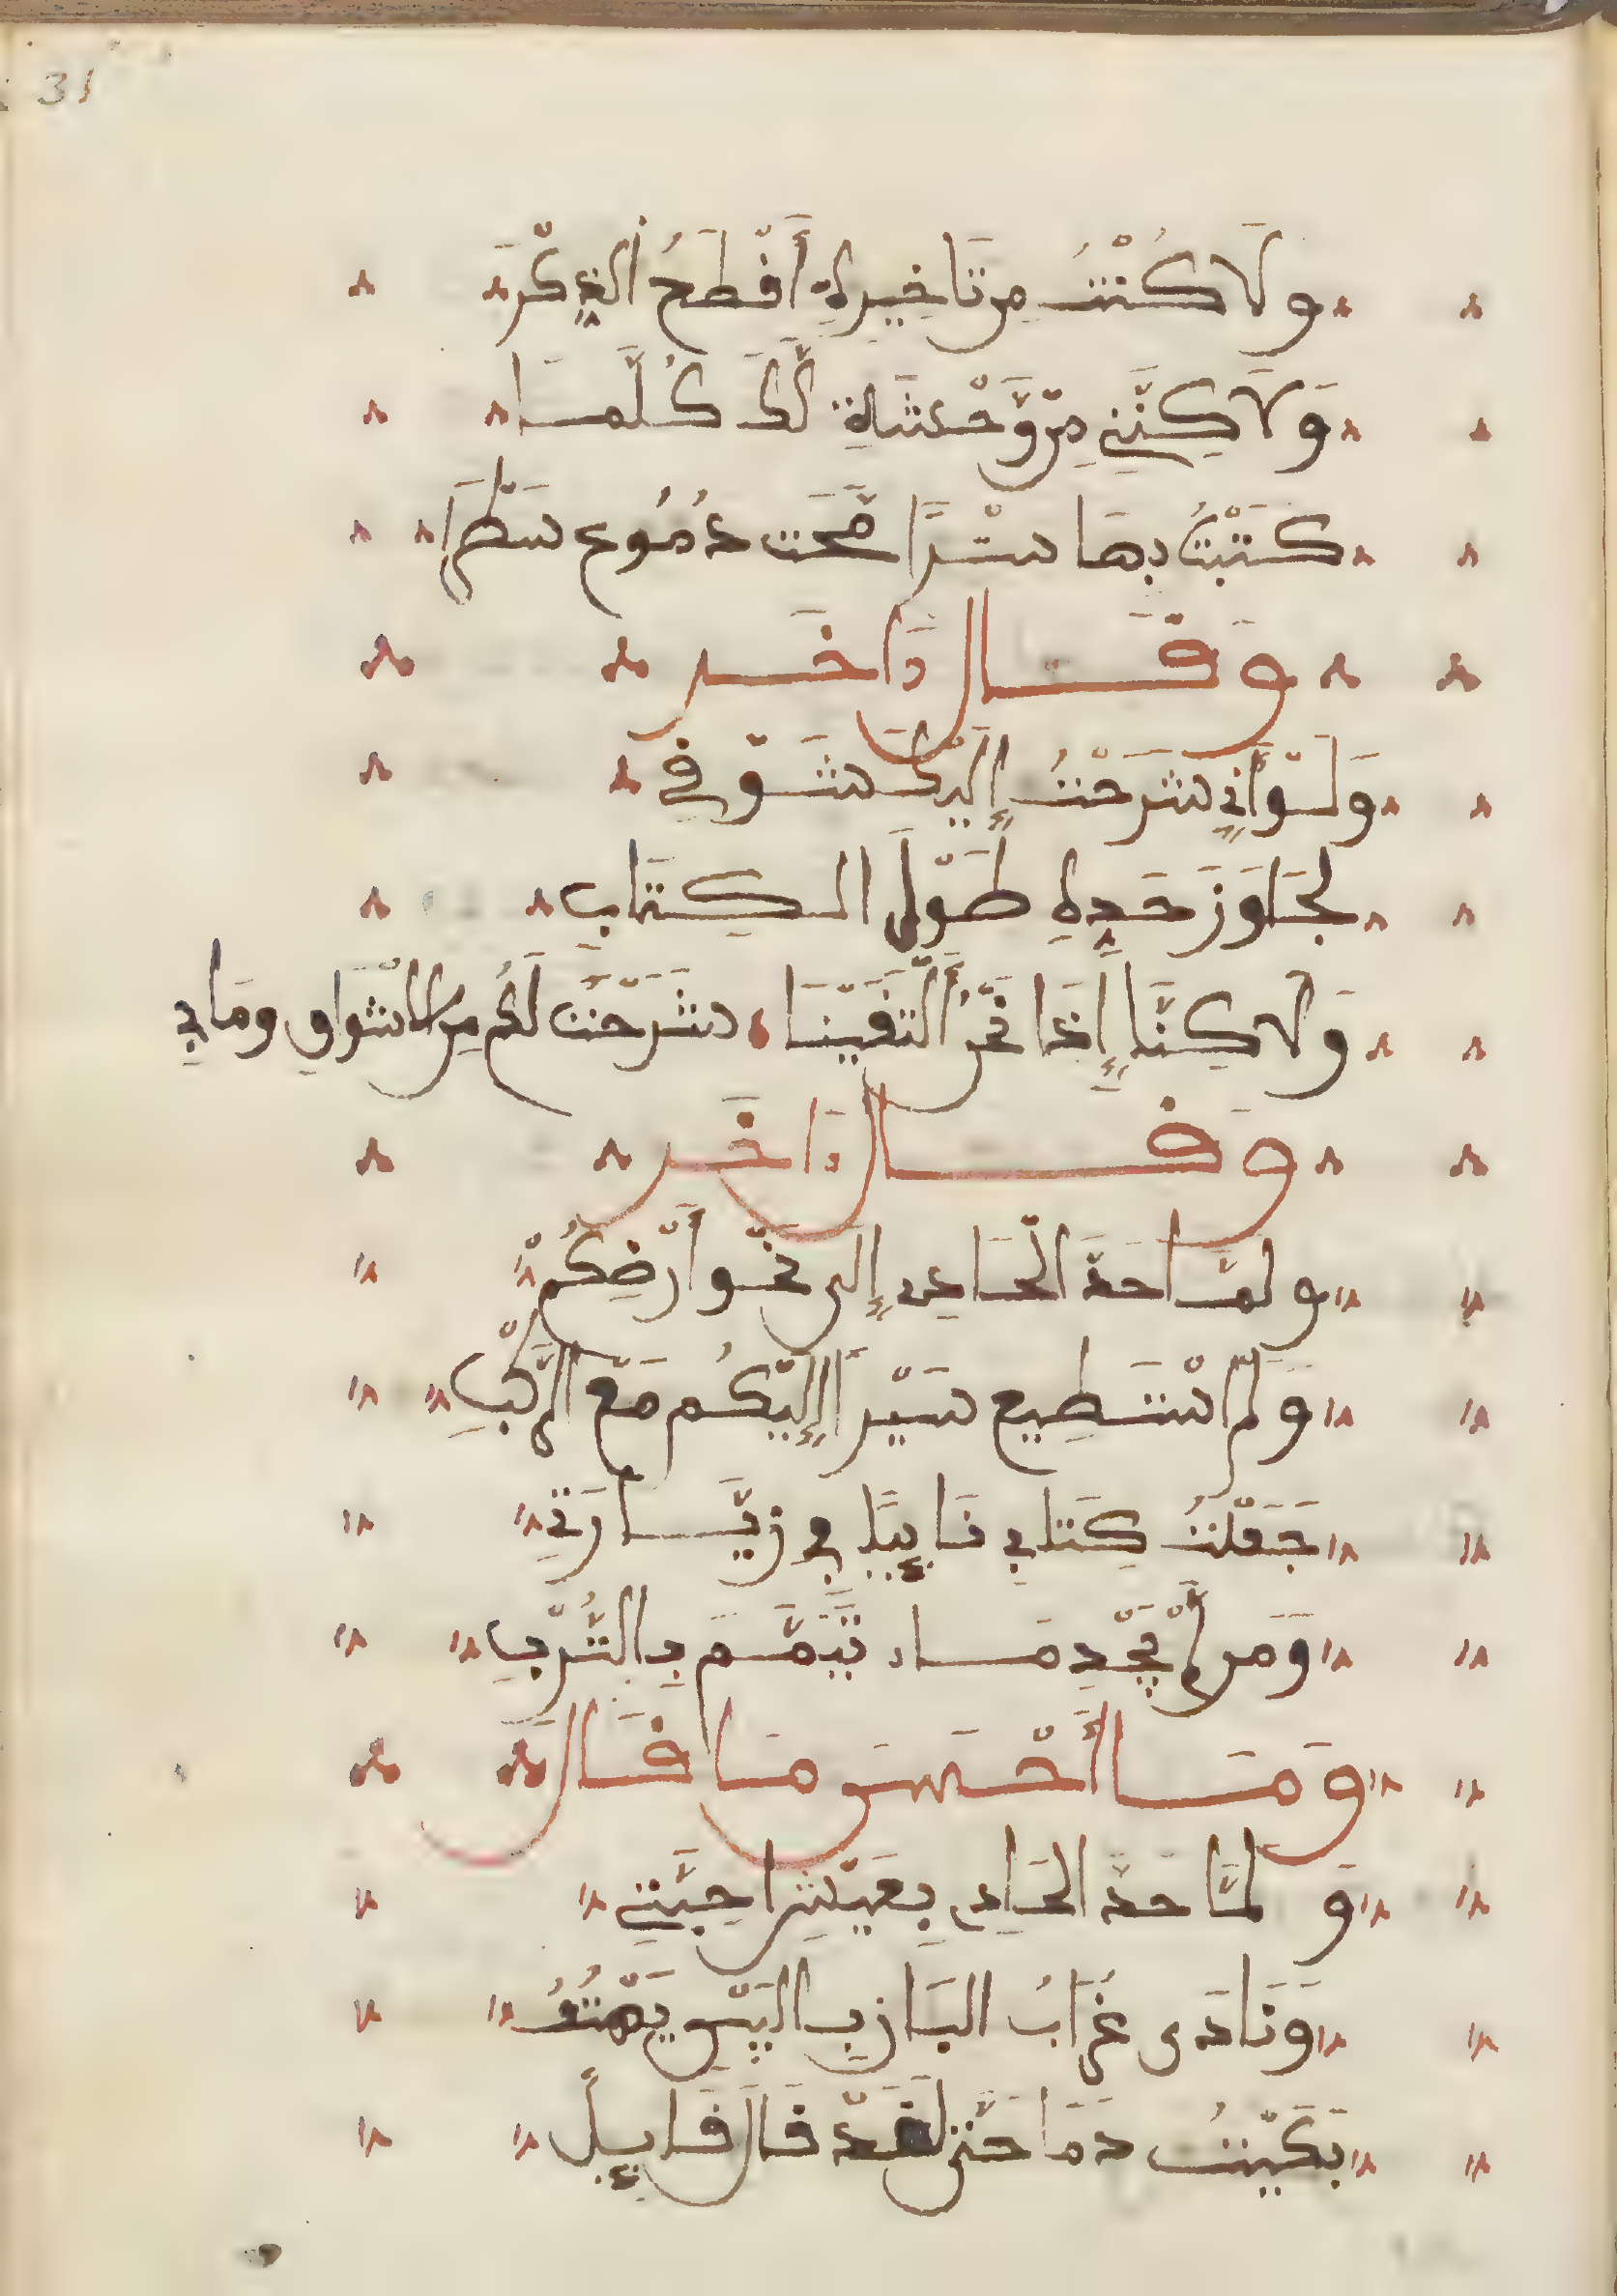 31
ولا كُنْتُ مِن تَاخِيرِهِ أَقْطَعُ الذِكْرَ
وَلَاكِنَّنِي مِنْ وَّحْشَةِ لَّكَ كُلَّمَا
كَتَبْتُ بِهَا سَتْرًا مَّحَت دُمُوع سَطْرًا
وَقَال ءَاخَر
وَلَوْ أَنِّي شَرَحْتُ إِلَيْكَ شَوْقِي
لَجَاوَزَ حَدِهِ طَوْلَ الكِتَابِ
وَلَاكِنَّا إِذَا نَحْنُ أَلْتَقَيْنَا شَرَحْت لَكُم مِن الشَوَاقِ وَمَا بِي
وَقَال ءَاخَر
وَلَمَّا حَدَ الْحَادِي إِلَى نَحْوِ أَرْضِكُمْ
وَلَم اسْتَطِيع سَيْرًا إِلَيْكُم مَعَ الرَّكْبِ
جَعَلْتُ كِتَابِي نَايِبًا فِي زِيَّارَتِي
وَمَن لَّمْ يَجِّد مَاء تَيَمَّمَ بِالتُّرْبِ
وَمَا أَحْسَنَ مَا قَالَ
وَ لَمَّا حَدَّ الحَادِي بِعَيْشِ احِبَّتِي
وَنَادَى غُرَابُ البَازِ بِالبَيْنِ يَهْتُفُ
بَكَيْتُ دَمَا حَتَّى لَقَدْ قَال قَايِلٌ